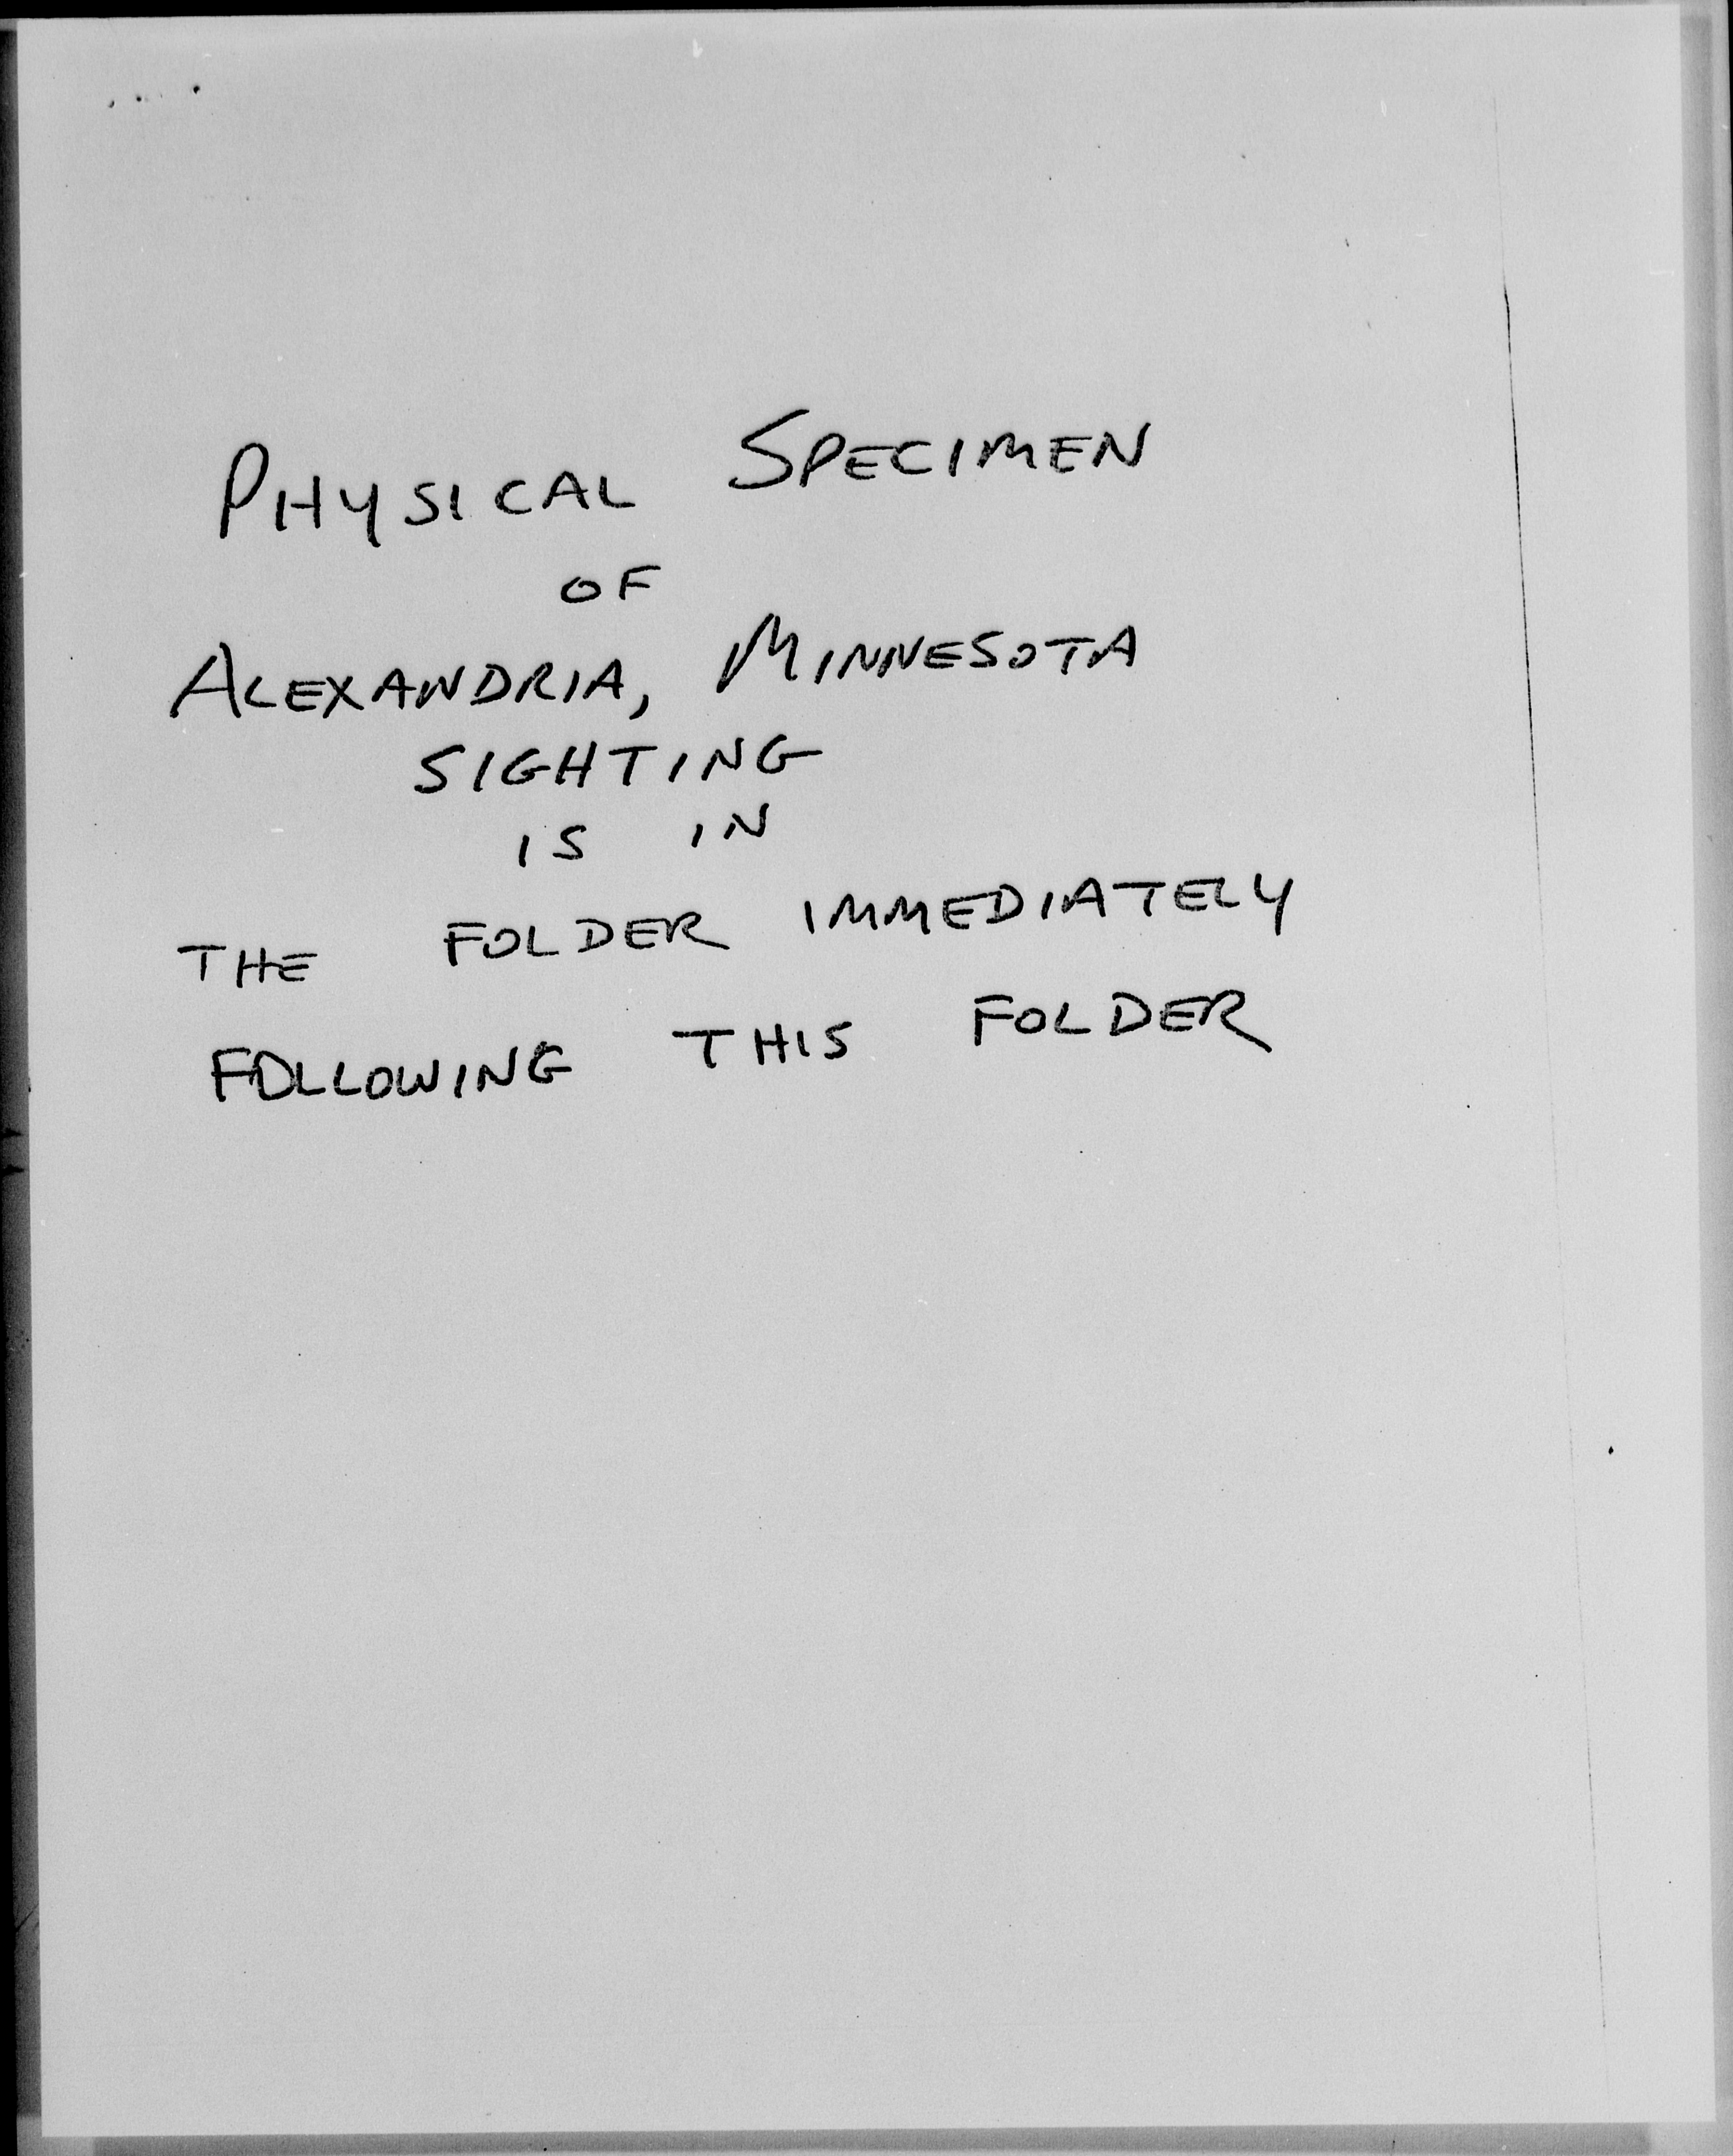 PHYSICAL SPECIMEN
OF
ALEXANDRIA, MINNESOTA
SIGHTING
IS IN
THE FOLDER IMMEDIATELY
FOLLOWING THIS FOLDER